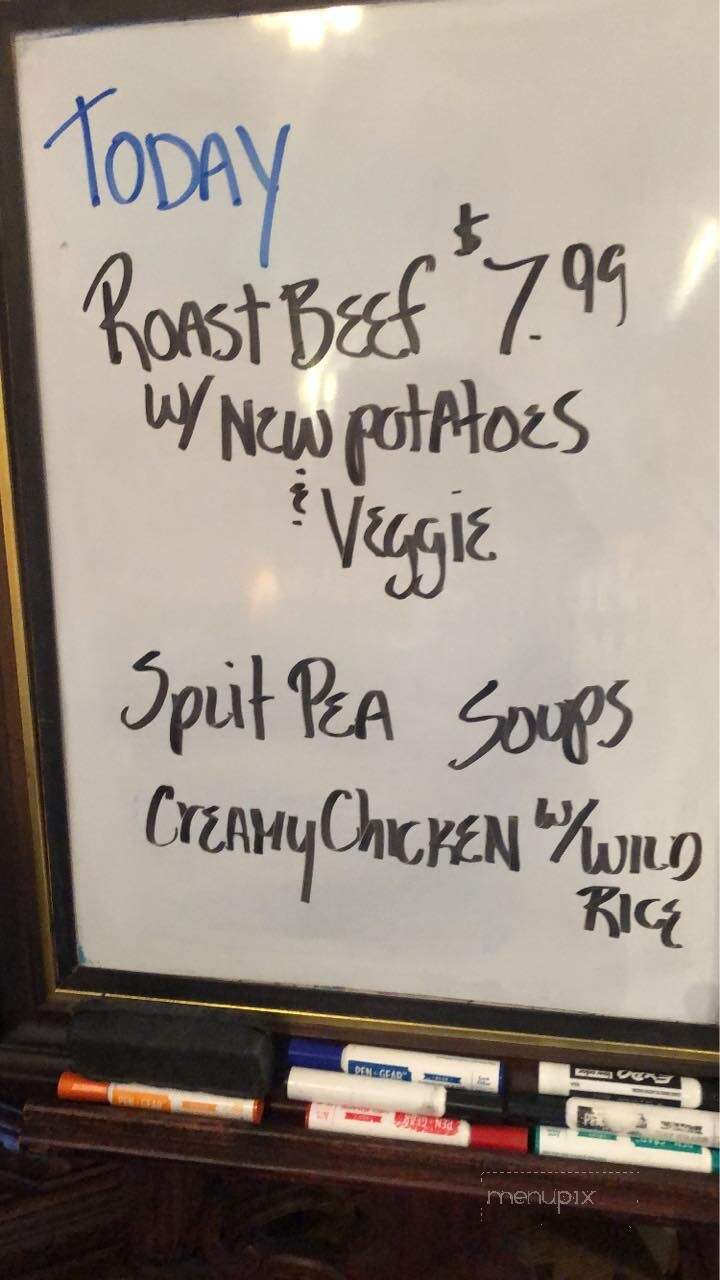 TODAY
ROAST BEEF $7.99
W/ NEW POTATOES
& VEGGIE
SPLIT PEA SOUPS
CREAMY CHICKEN W/ WILD
RICE
PEN+GEAR
EXPO
PEN+GEAR
PEN+GEAR
menupix